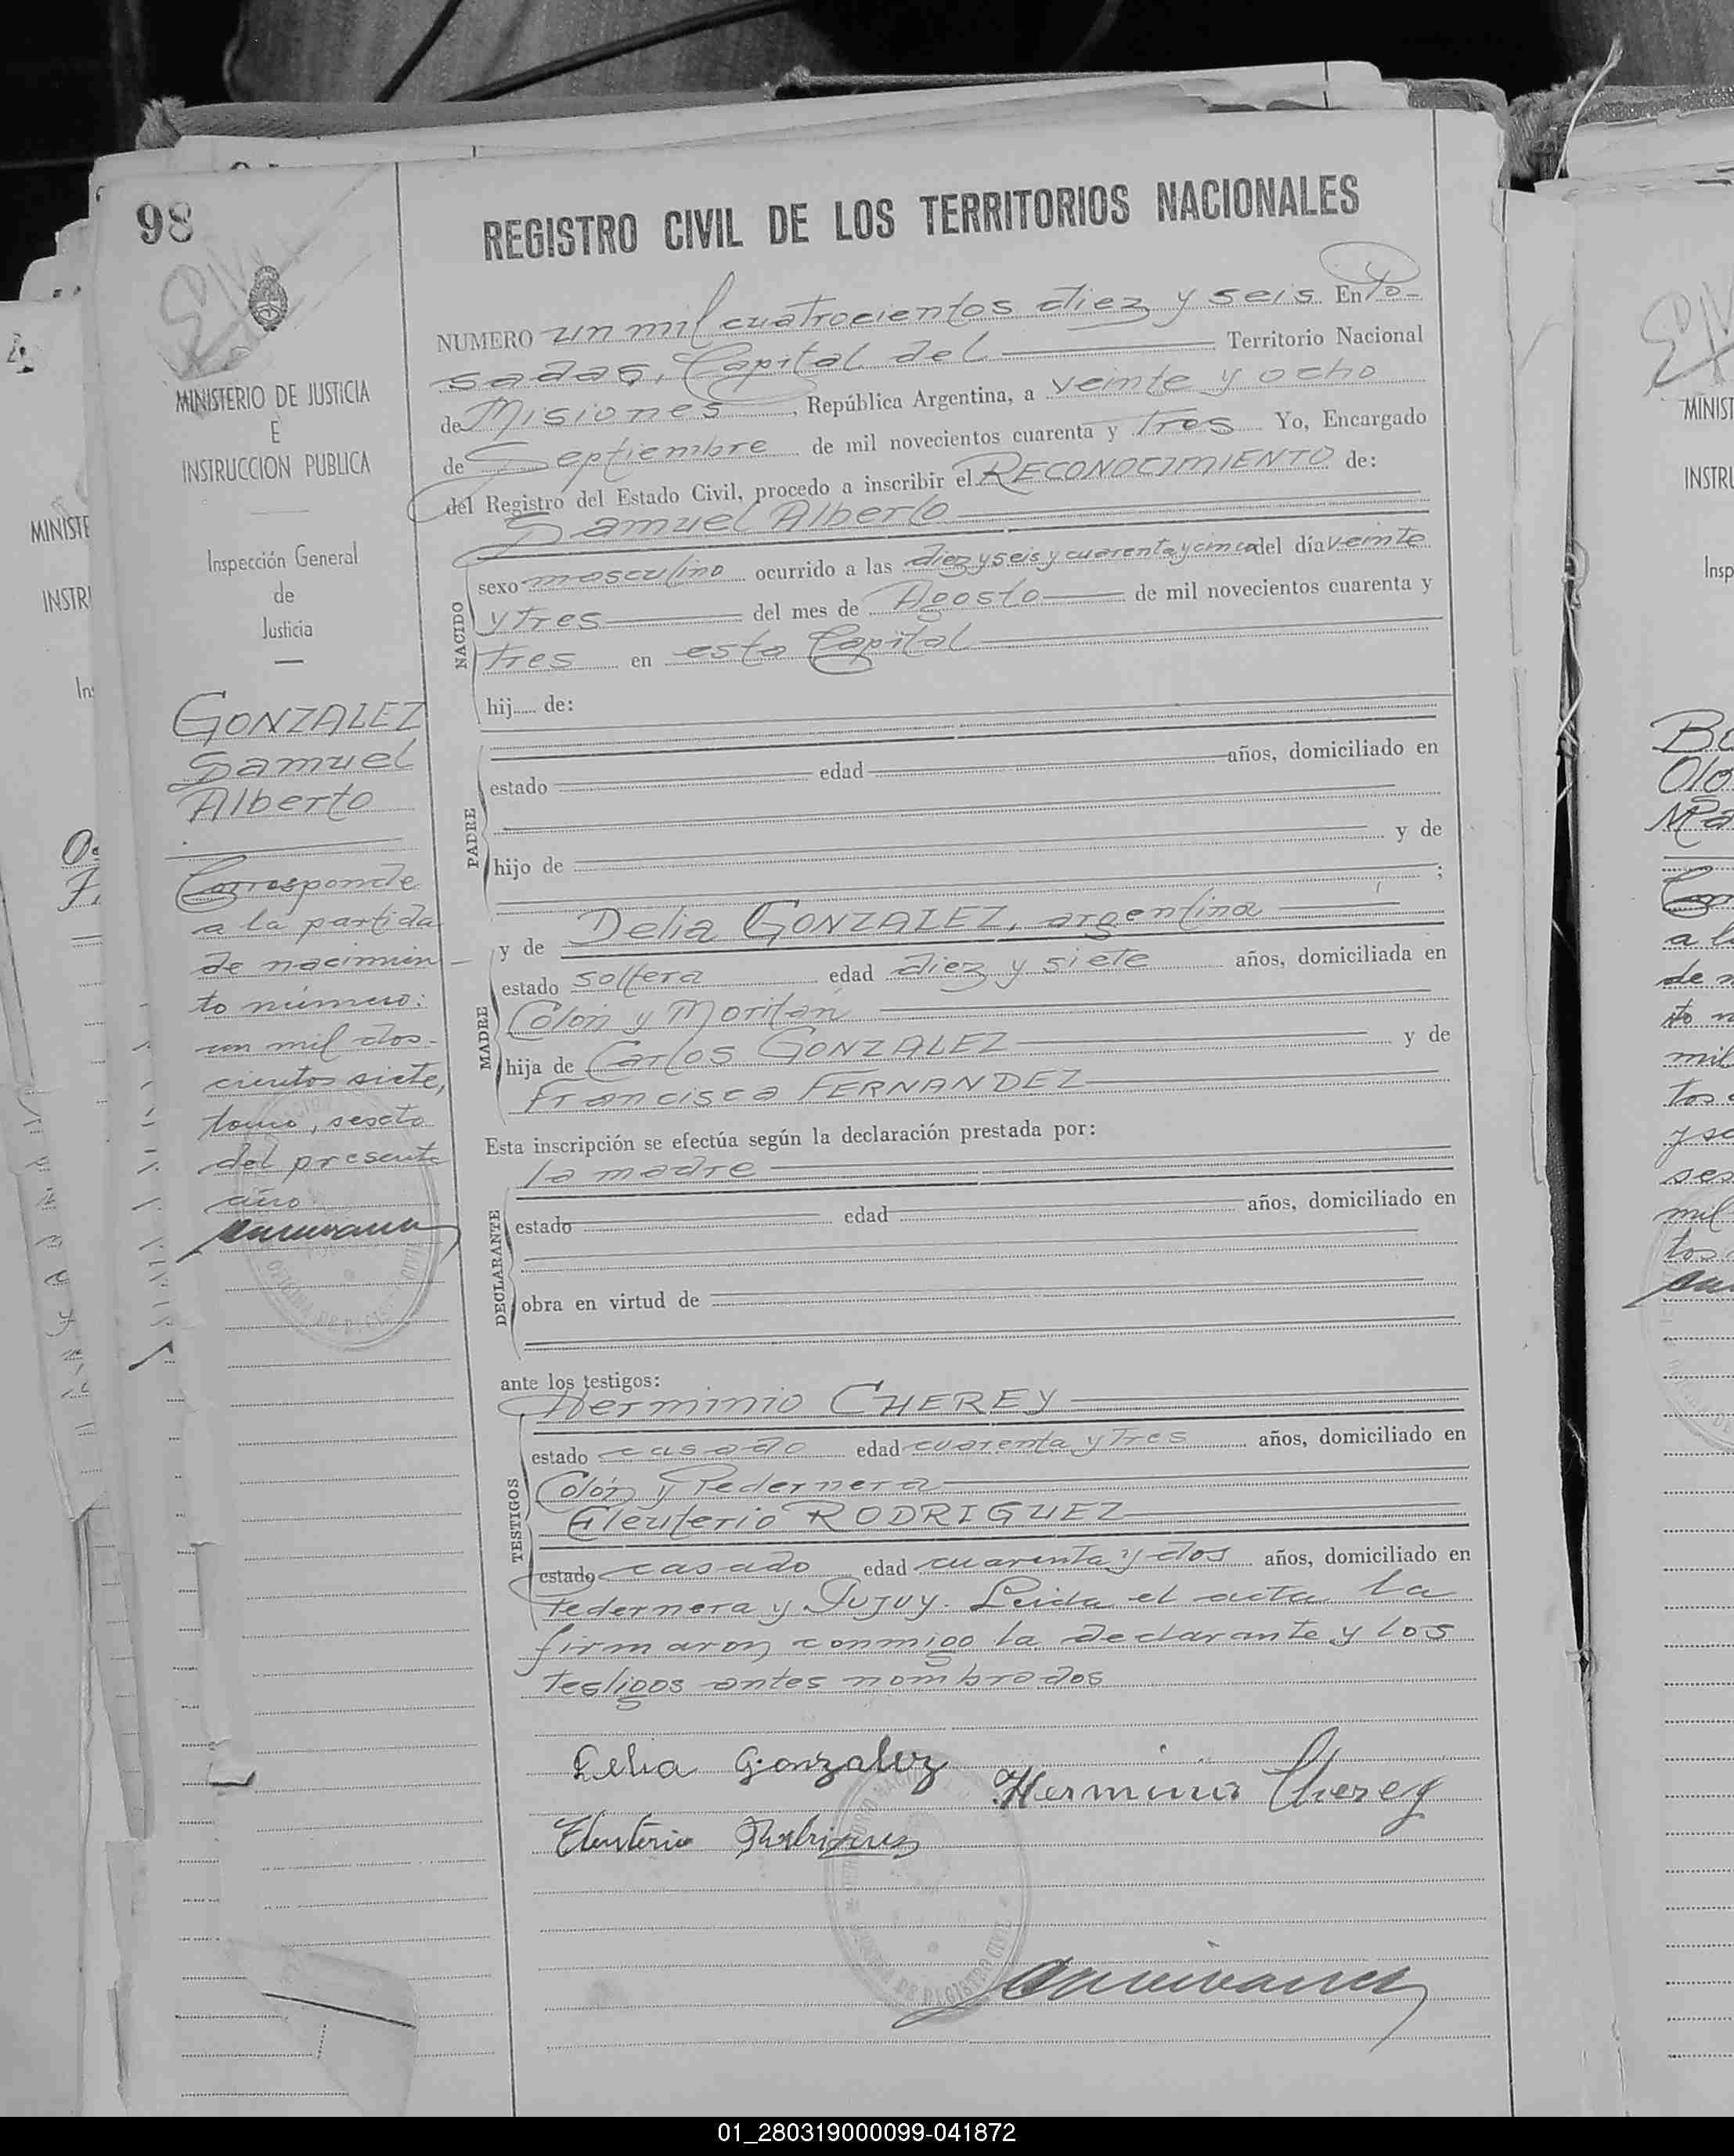 98
REGISTRO CIVIL DE LOS TERRITORIOS NACIONALES
MINISTERIO DE JUSTICIA
E
INSTRUCCION PUBLICA
Inspección General
de
Justicia
GONZALEZ
Samuel
Alberto
Corresponde
a la partida
de nacimien
to número:
un mil dos-
cientos siete,
tomo, sexto
del presente
año
NUMERO un mil cuatrocientos diez y seis En Po-
sadas, Capital del Territorio Nacional
de Misiones, República Argentina, a veinte y ocho
de Septiembre de mil novecientos cuarenta y tres Yo, Encargado
del Registro del Estado Civil, procedo a inscribir el RECONOCIMIENTO de:
Samuel Alberto
NACIDO
sexo masculino ocurrido a las diez y seis y cuarenta y cinco del día veinte
y tres del mes de Agosto de mil novecientos cuarenta y
tres en esta Capital
hij..... de:
PADRE
estado edad años, domiciliado en
hijo de y de
;
y de Delia GONZALEZ, argentina
MADRE
estado soltera edad diez y siete años, domiciliada en
Colón y Moritán
hija de Carlos GONZALEZ y de
Francisca FERNANDEZ
Esta inscripción se efectúa según la declaración prestada por:
la madre
DECLARANTE
estado edad años, domiciliado en
obra en virtud de
ante los testigos:
Herminio CHEREY
TESTIGOS
estado casado edad cuarenta y tres años, domiciliado en
Colón y Pedernera
Eleuterio RODRIGUEZ
estado casado edad cuarenta y dos años, domiciliado en
Pedernera y Jujuy. Leida el acta la
firmaron conmigo la declarante y los
testigos antes nombrados
Delia Gonzalez
Herminio Cherey
Eleuterio Rodriguez
MINIST
INSTRU
Insp
01_280319000099-041872